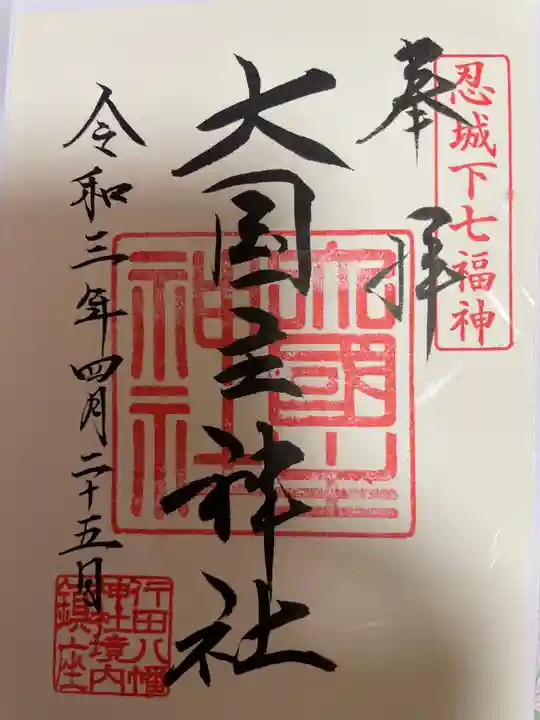 忍城下七福神
奉拝
大国主神社
大國主
神社
令和三年四月二十五日
行田八幡
神社境内
鎮座